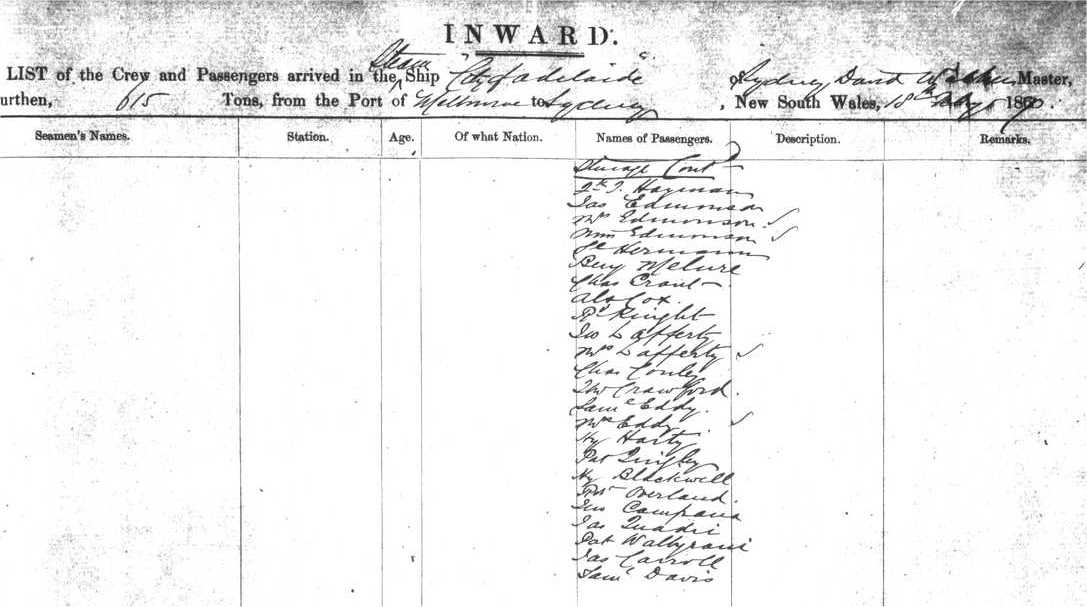 INWARD.
LIST of the Crew and Passengers arrived in the Steam Ship "City of Adelaide" of Sydney David Walker Master,
urthen, 615 Tons, from the Port of Melbourne to Sydney, New South Wales, 18th 1870.
Seamen's Names. Station. Age. Of what Nation. Names of Passengers. Description. Remarks.
Steerage Cont
Hayman
Jas Edmonson
Mrs Edmonson
Wm Edmonson
Hermann
Benj McLure
Chas Grant
Alx Cox.
Rd Knight
Jno Lafferty
Mrs Lafferty
Chas Conley
Crawford.
Saml Eddy.
Mrs Eddy.
Hy Harty
Pat Quigley
Hy Blackwell
Overland.
Campana
Jas Quadri
Pat
Jas Carroll
Saml Davis